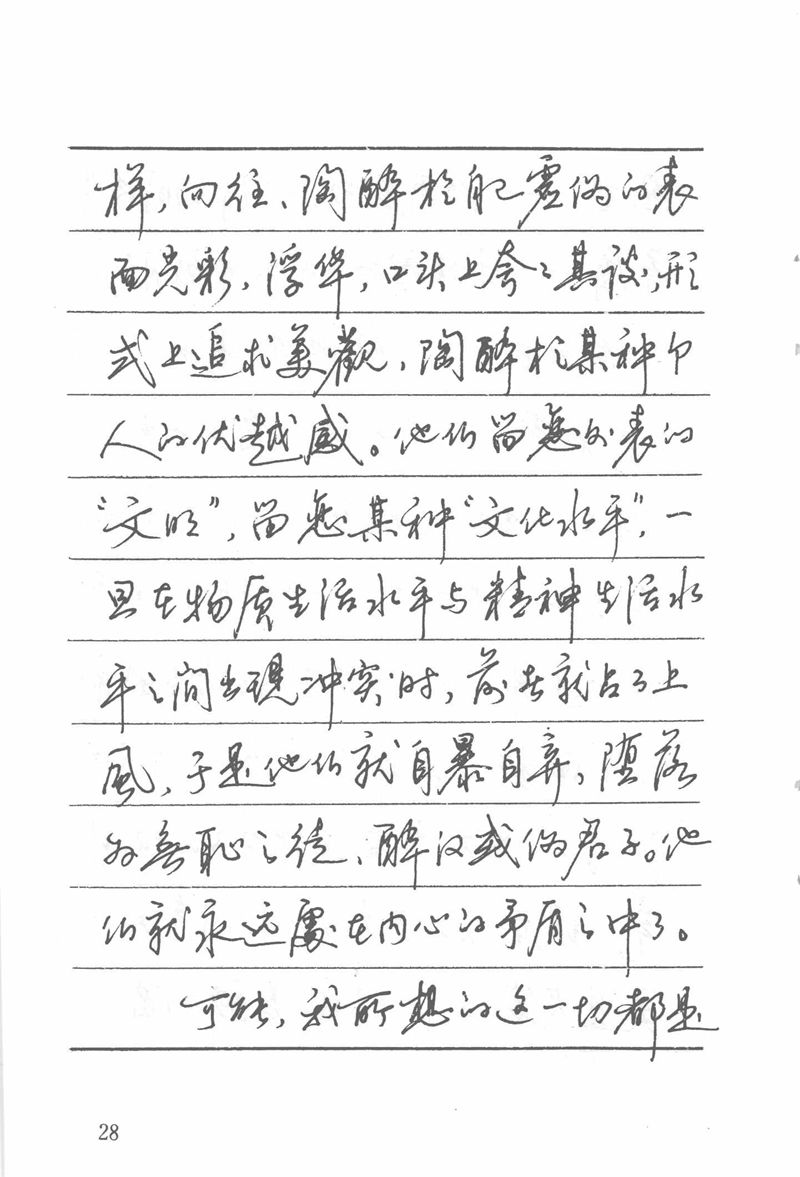 样，向往、陶醉於那虚伪的表
面光彩，浮华，口头上夸夸其谈，形
式上追求美觀，陶醉於某种个
人的优越感。他们留恋外表的
“文明”，留恋某种“文化水平”，一
旦在物质生活水平与精神生活水
平之间出现冲突时，前者就占了上
風，于是他们就自暴自弃，堕落
为無恥之徒、醉汉或伪君子。他
们就永远處在内心的矛盾之中了。
可能，我所想的这一切都是
28